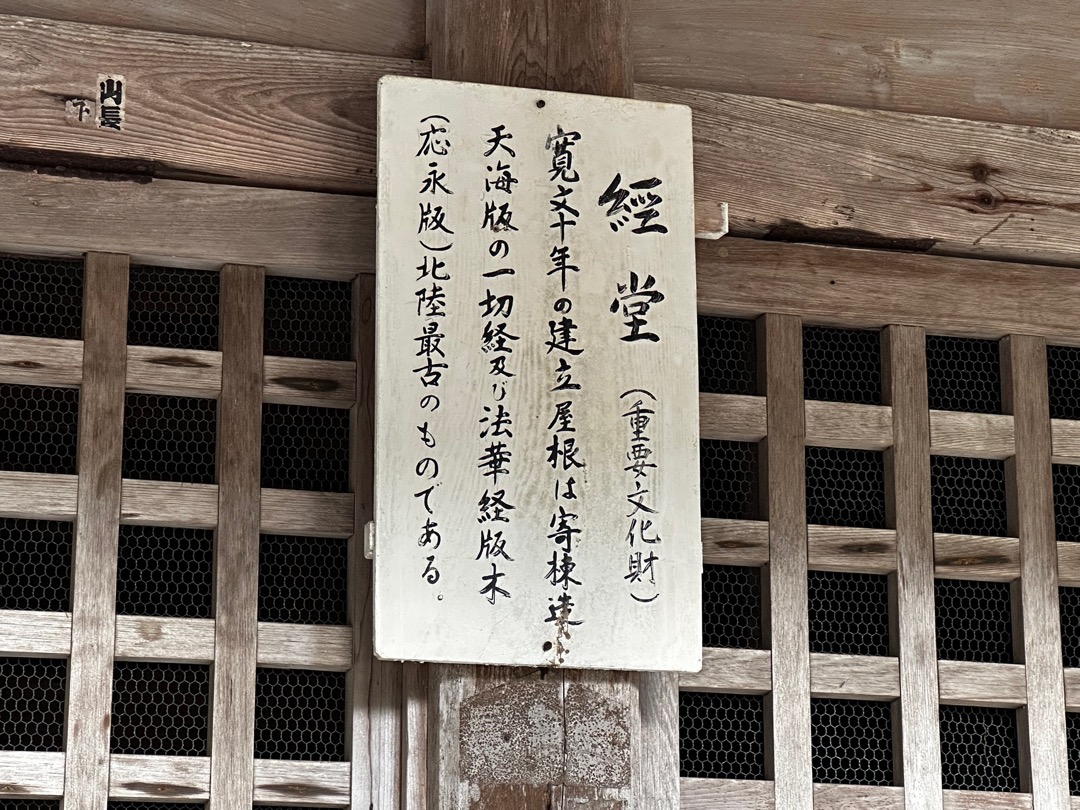 經堂(重要文化財)
寛文十年の建立屋根は寄棟造
天海版の一切経及び法華経版木
(応永版)北陸最古のものである。
山長
下